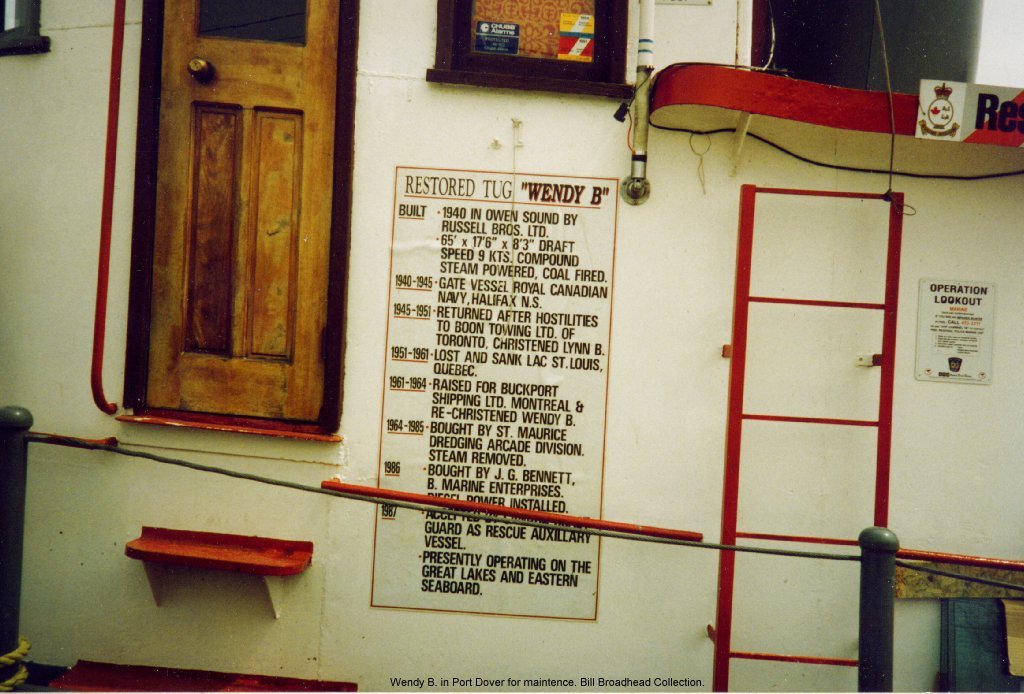 CHUBB
Alarms
Res
RESTORED TUG "WENDY B"
BUILT · 1940 IN OWEN SOUND BY
RUSSELL BROS. LTD.
· 65' x 17'6" x 8'3" DRAFT
SPEED 9 KTS. COMPOUND
STEAM POWERED, COAL FIRED.
1940-1945 · GATE VESSEL ROYAL CANADIAN
NAVY, HALIFAX N.S.
1945-1951 · RETURNED AFTER HOSTILITIES
TO BOON TOWING LTD. OF
TORONTO, CHRISTENED LYNN B.
1951-1961 · LOST AND SANK LAC ST. LOUIS,
QUEBEC.
1961-1964 · RAISED FOR BUCKPORT
SHIPPING LTD. MONTREAL &
RE-CHRISTENED WENDY B.
1964-1985 · BOUGHT BY ST. MAURICE
DREDGING ARCADE DIVISION.
STEAM REMOVED.
1986 · BOUGHT BY J. G. BENNETT,
B. MARINE ENTERPRISES.
DIESEL POWER INSTALLED.
1987 · ACCEPTED
GUARD AS RESCUE AUXILLARY
VESSEL.
· PRESENTLY OPERATING ON THE
GREAT LAKES AND EASTERN
SEABOARD.
OPERATION
LOOKOUT
MARINE
Wendy B. in Port Dover for maintence. Bill Broadhead Collection.